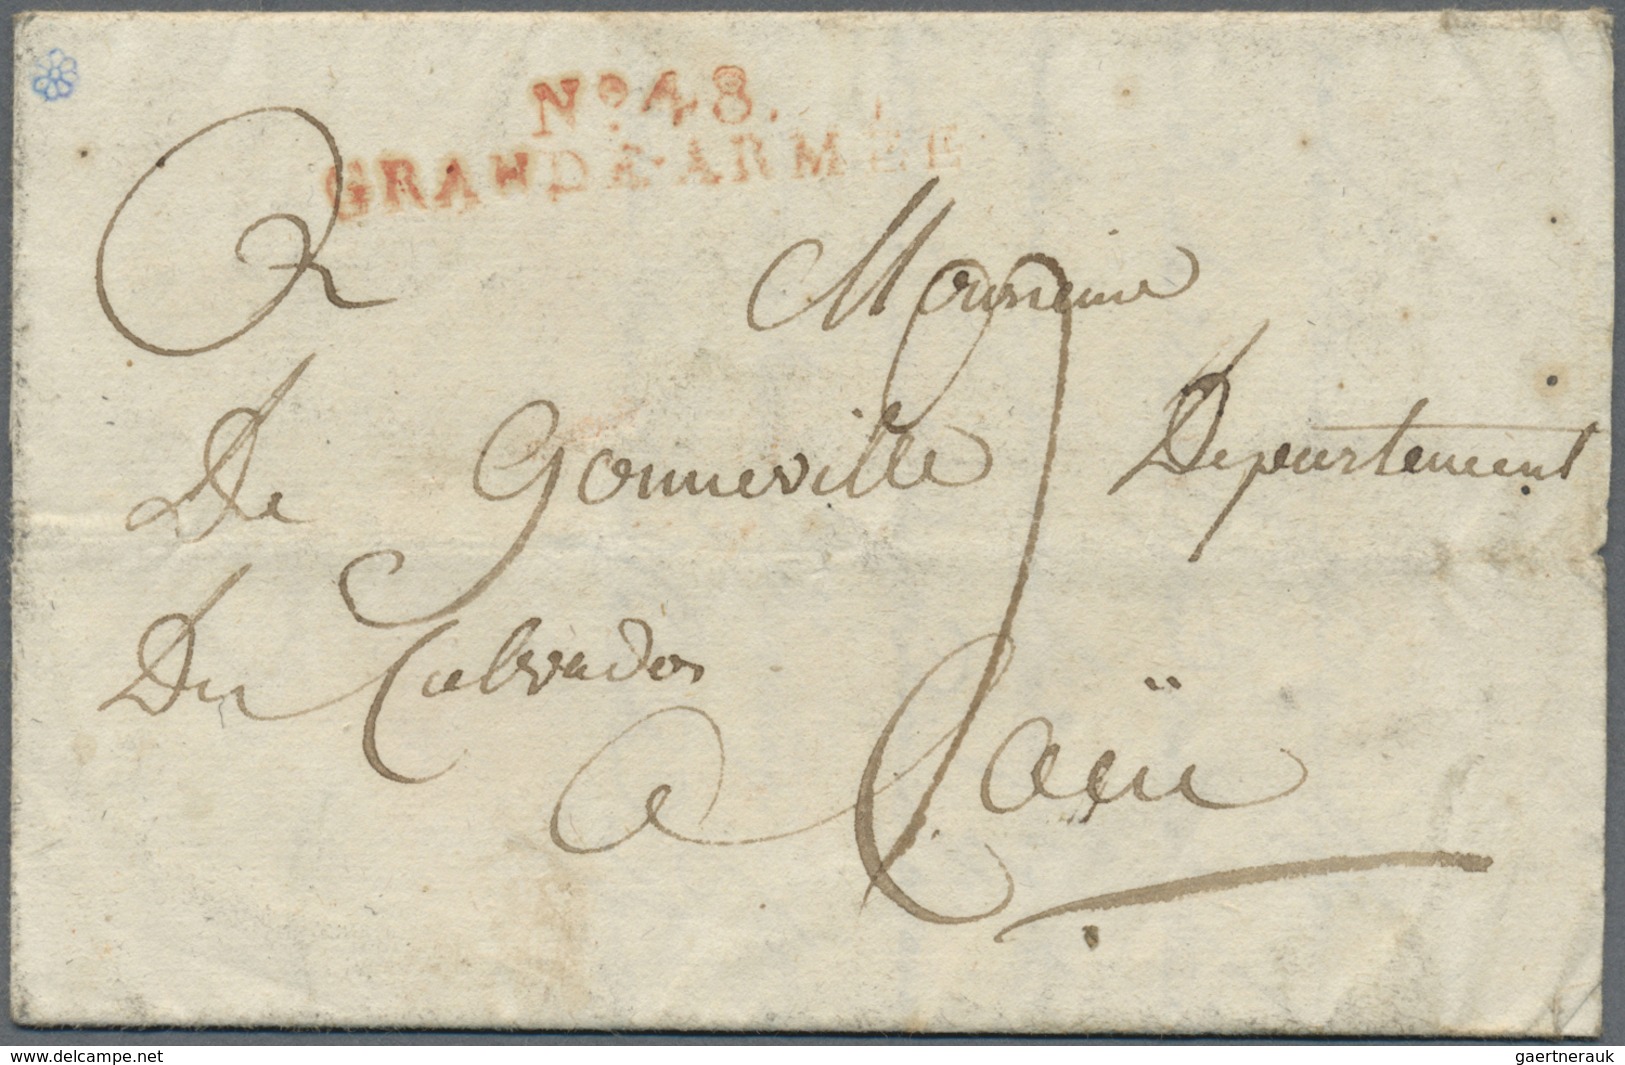 No 48.
GRANDE-ARMÉE
A Monsieur
De Gonneville Departement
Du Calvados
a Caën
www.delcampe.net
gaertnerauk